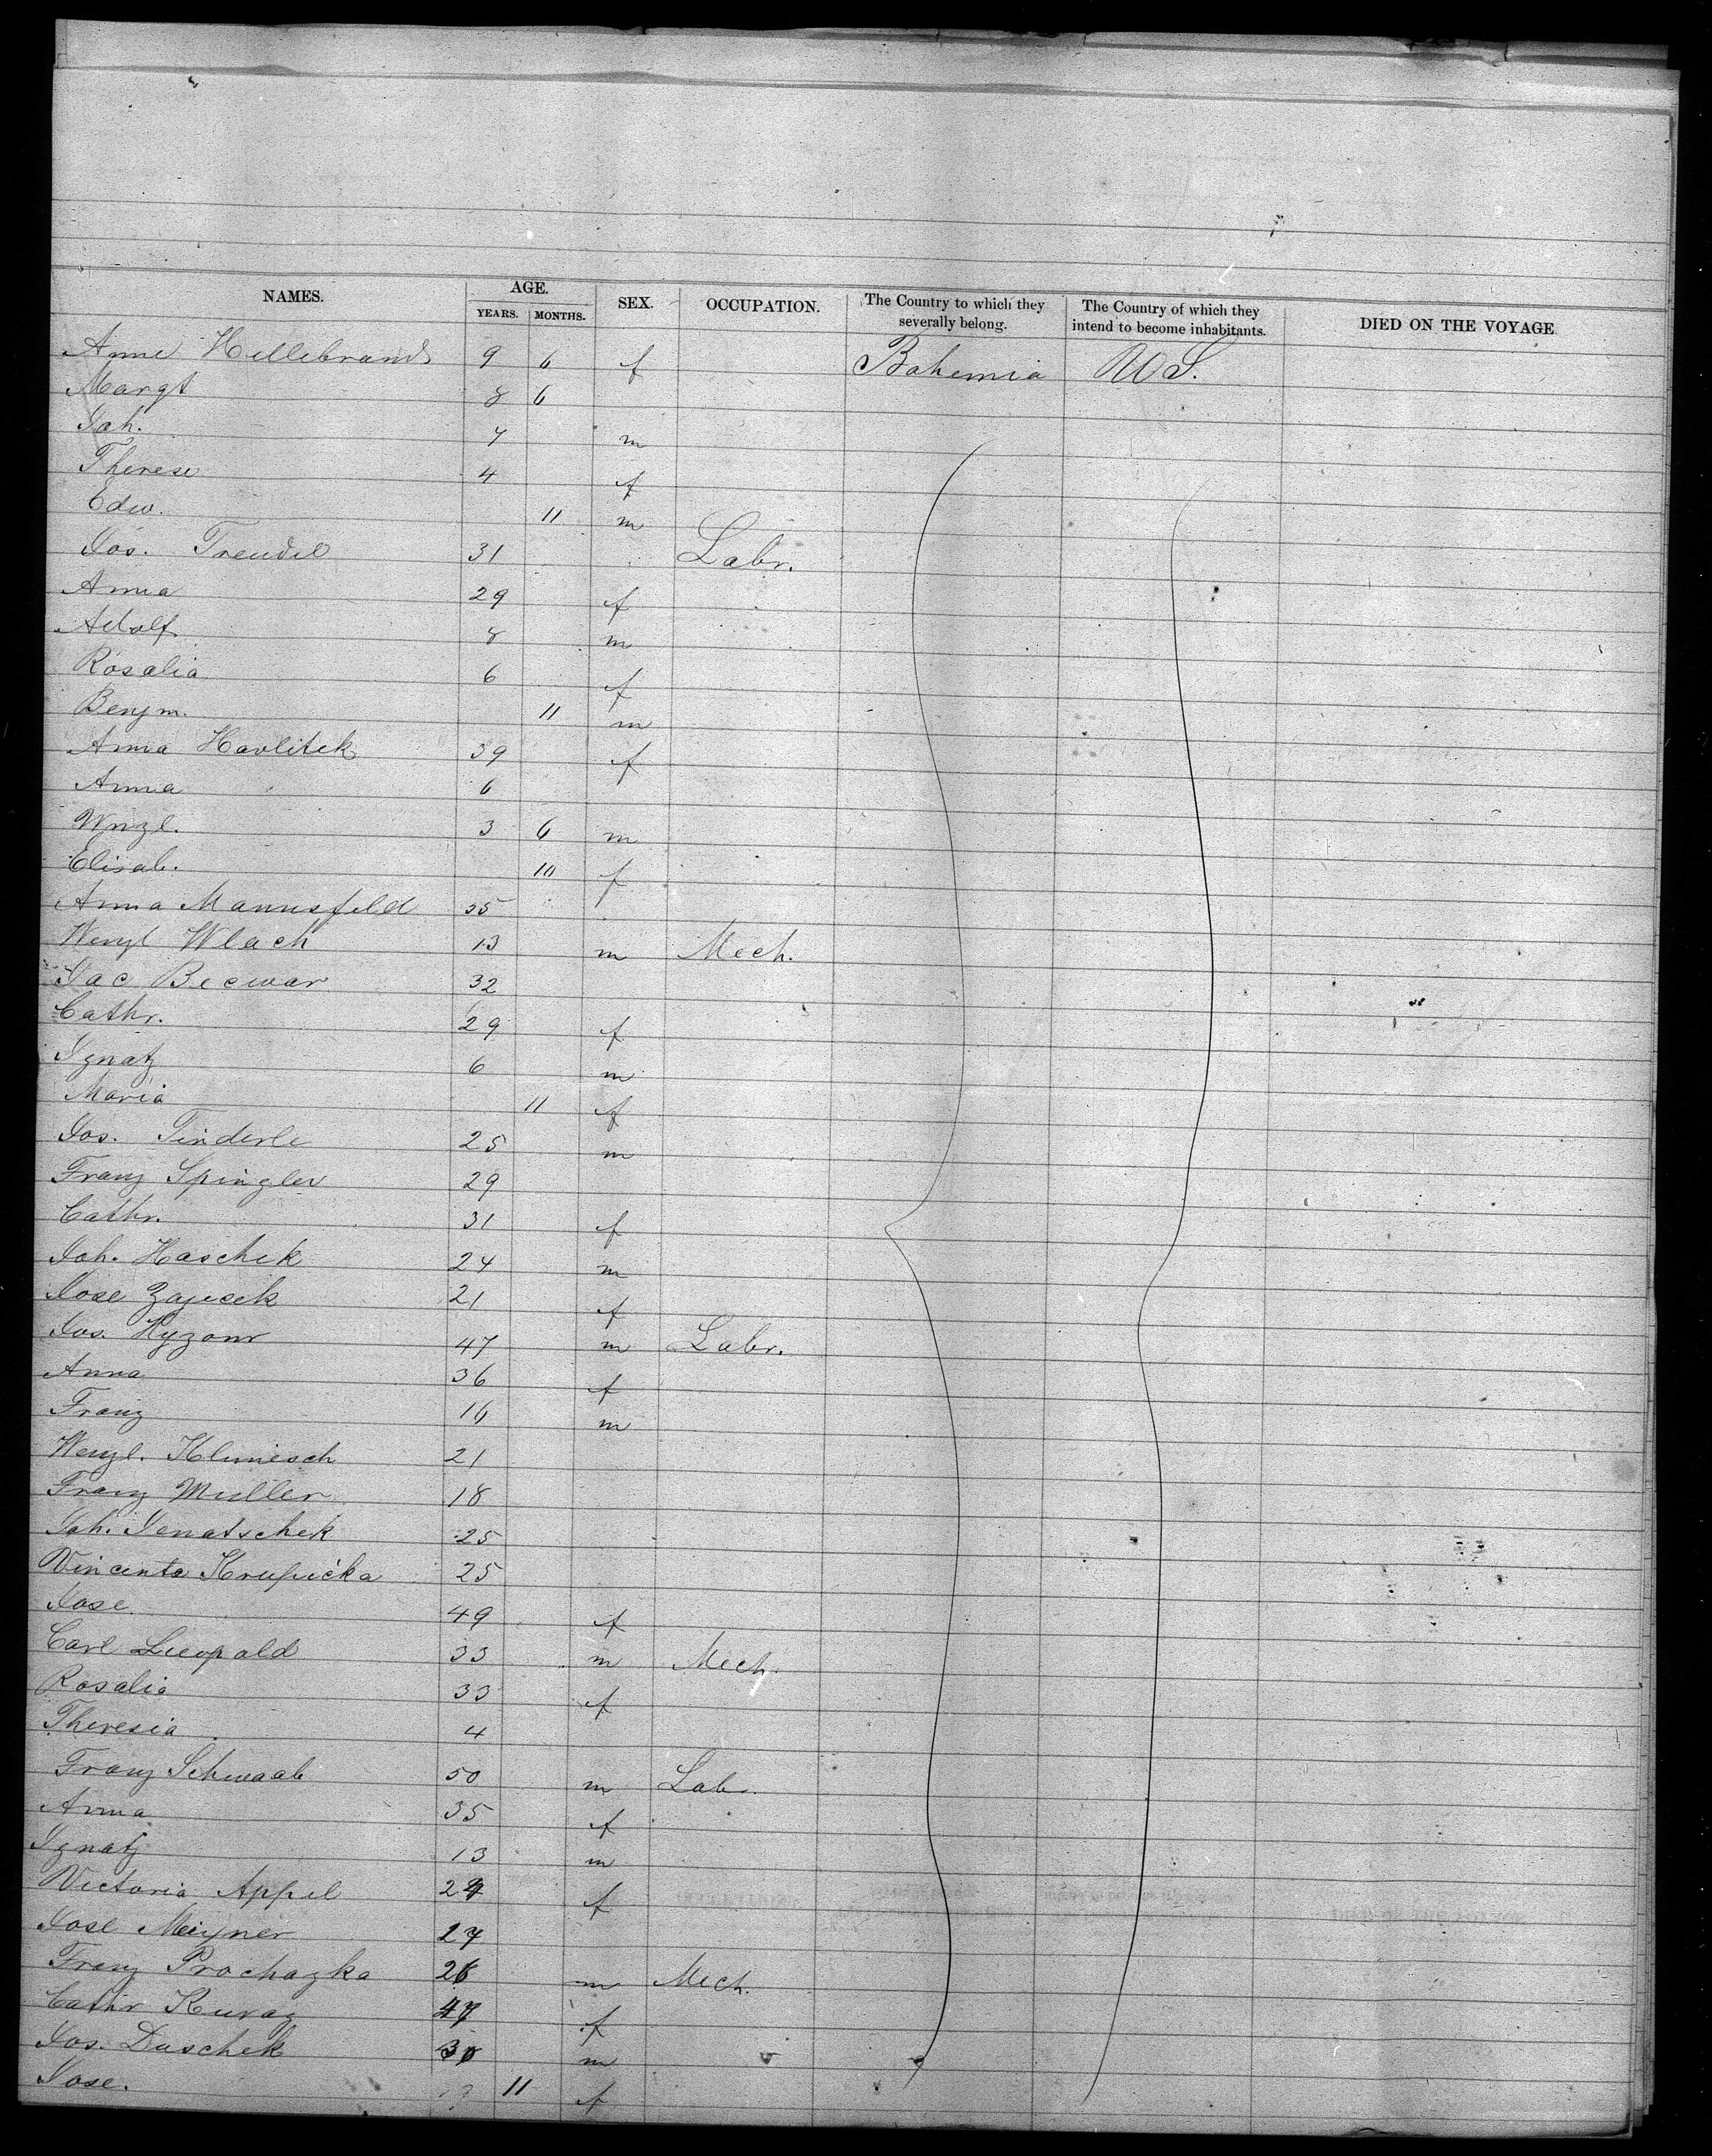 NAMES. AGE. SEX. OCCUPATION. The Country to which they severally belong. The Country of which they intend to become inhabitants. DIED ON THE VOYAGE
YEARS. MONTHS.
Anne Hellebrand 9 6 f Bohemia US.
Margt 8 6
Joh. 7 m
Therese 4 f
Edw. 11 m
Jos. Treudel 31 Labr.
Anna 29 f
Adolf 8 m
Rosalia 6 f
Benjm. 11 m
Anna Havlitek 39 f
Anna 6
Wnzl. 3 6 m
Elisab. 10 f
Anna Mannsfeld 35
Wenzl Wlach 13 m Mech.
Jac Becwar 32
Cathr. 29 f
Ignatz 6 m
Maria 11 f
Jos. Tinderle 25 m
Franz Spingler 29
Cathr. 31 f
Joh. Haschek 24 m
Jose Zajicek 21 f
Jos. Hyzour 47 m Labr.
Anna 36 f
Franz 16 m
Wenzl. Klimesch 21
Franz Muller 18
Joh. Jenatschek 25
Vincenta Krupicka 25
Jose 49 f
Carl Leopold 33 m Mech.
Rosalia 33 f
Theresia 4
Franz Schwaab 50 m Lab.
Anna 35 f
Ignatz 13 m
Victoria Appel 24 f
Jose Meixner 27
Franz Prochazka 26 m Mech.
Cathr Kuraz 47 f
Jos. Duschek 30 m
Jose. 11 f